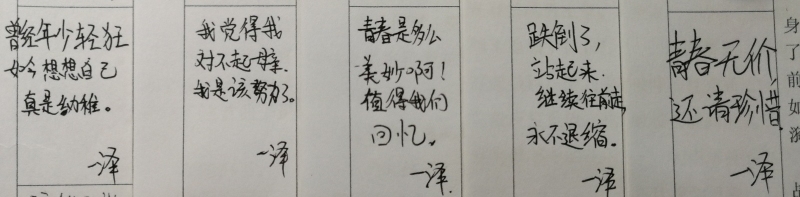 曾经年少轻狂
如今想想自己
真是幼稚。
一泽
我觉得我
对不起母亲.
我是该努力了。
一泽
青春是多么
美妙啊！
值得我们
回忆。
一泽.
跌倒了,
站起来.
继续往前走,
永不退缩。
一泽
青春无价,
还请珍惜.
一泽
身
了
前
如